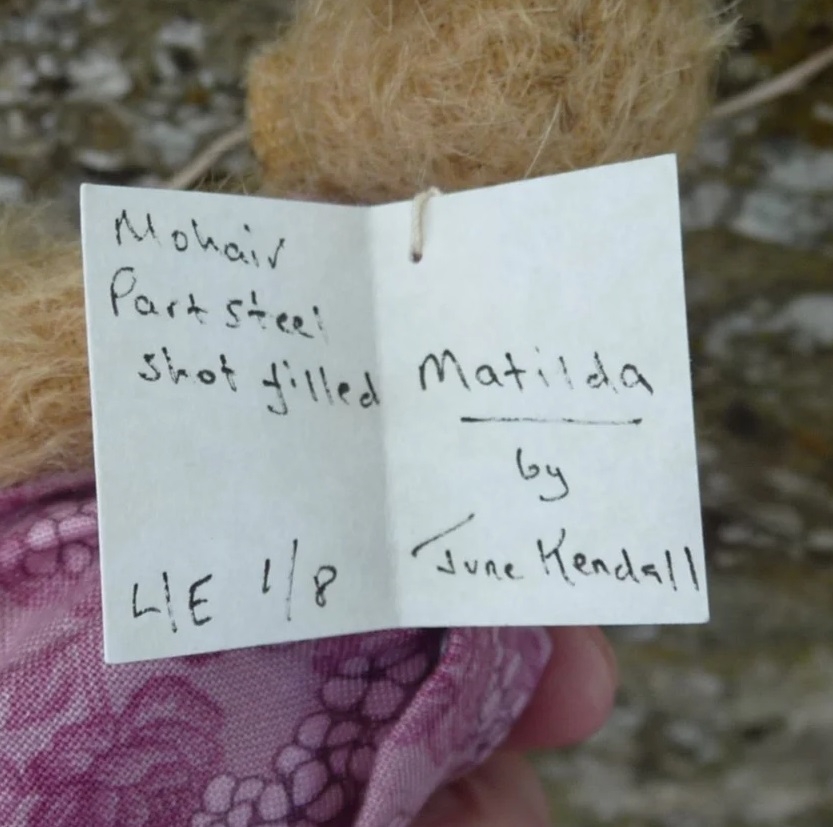 Mohair
Part steel
shot filled
L/E 1/8
Matilda
by
June Kendall